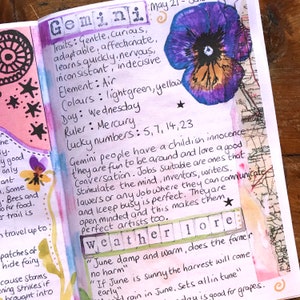 Gemini
May 21 -
Traits: Gentle, curious,
adaptable, affectionate,
learns quickly, nervous,
inconsistant, indecisive
Element: Air
Colours: lightgreen, yellow
Day: Wednesday
Ruler: Mercury
Lucky numbers: 5, 7, 14, 23
Gemini people have a childish innocence
They are fun to be around and love a good
conversation. Jobs suitable are ones that
stimulate the mind, inventors, writers,
or any Job where they can communicate
and keep busy is perfect. They are
open minded and this makes them
perfect artists too.
weather lore
"June damp and warm, does the farmer
no harm"
"If June is sunny the harvest will come
early"
rain in June, Sets all in tune"
day is good for grapes.
Bees and
for food.
travel up to
patches of
hide fairy
because storms
striking fires
brought